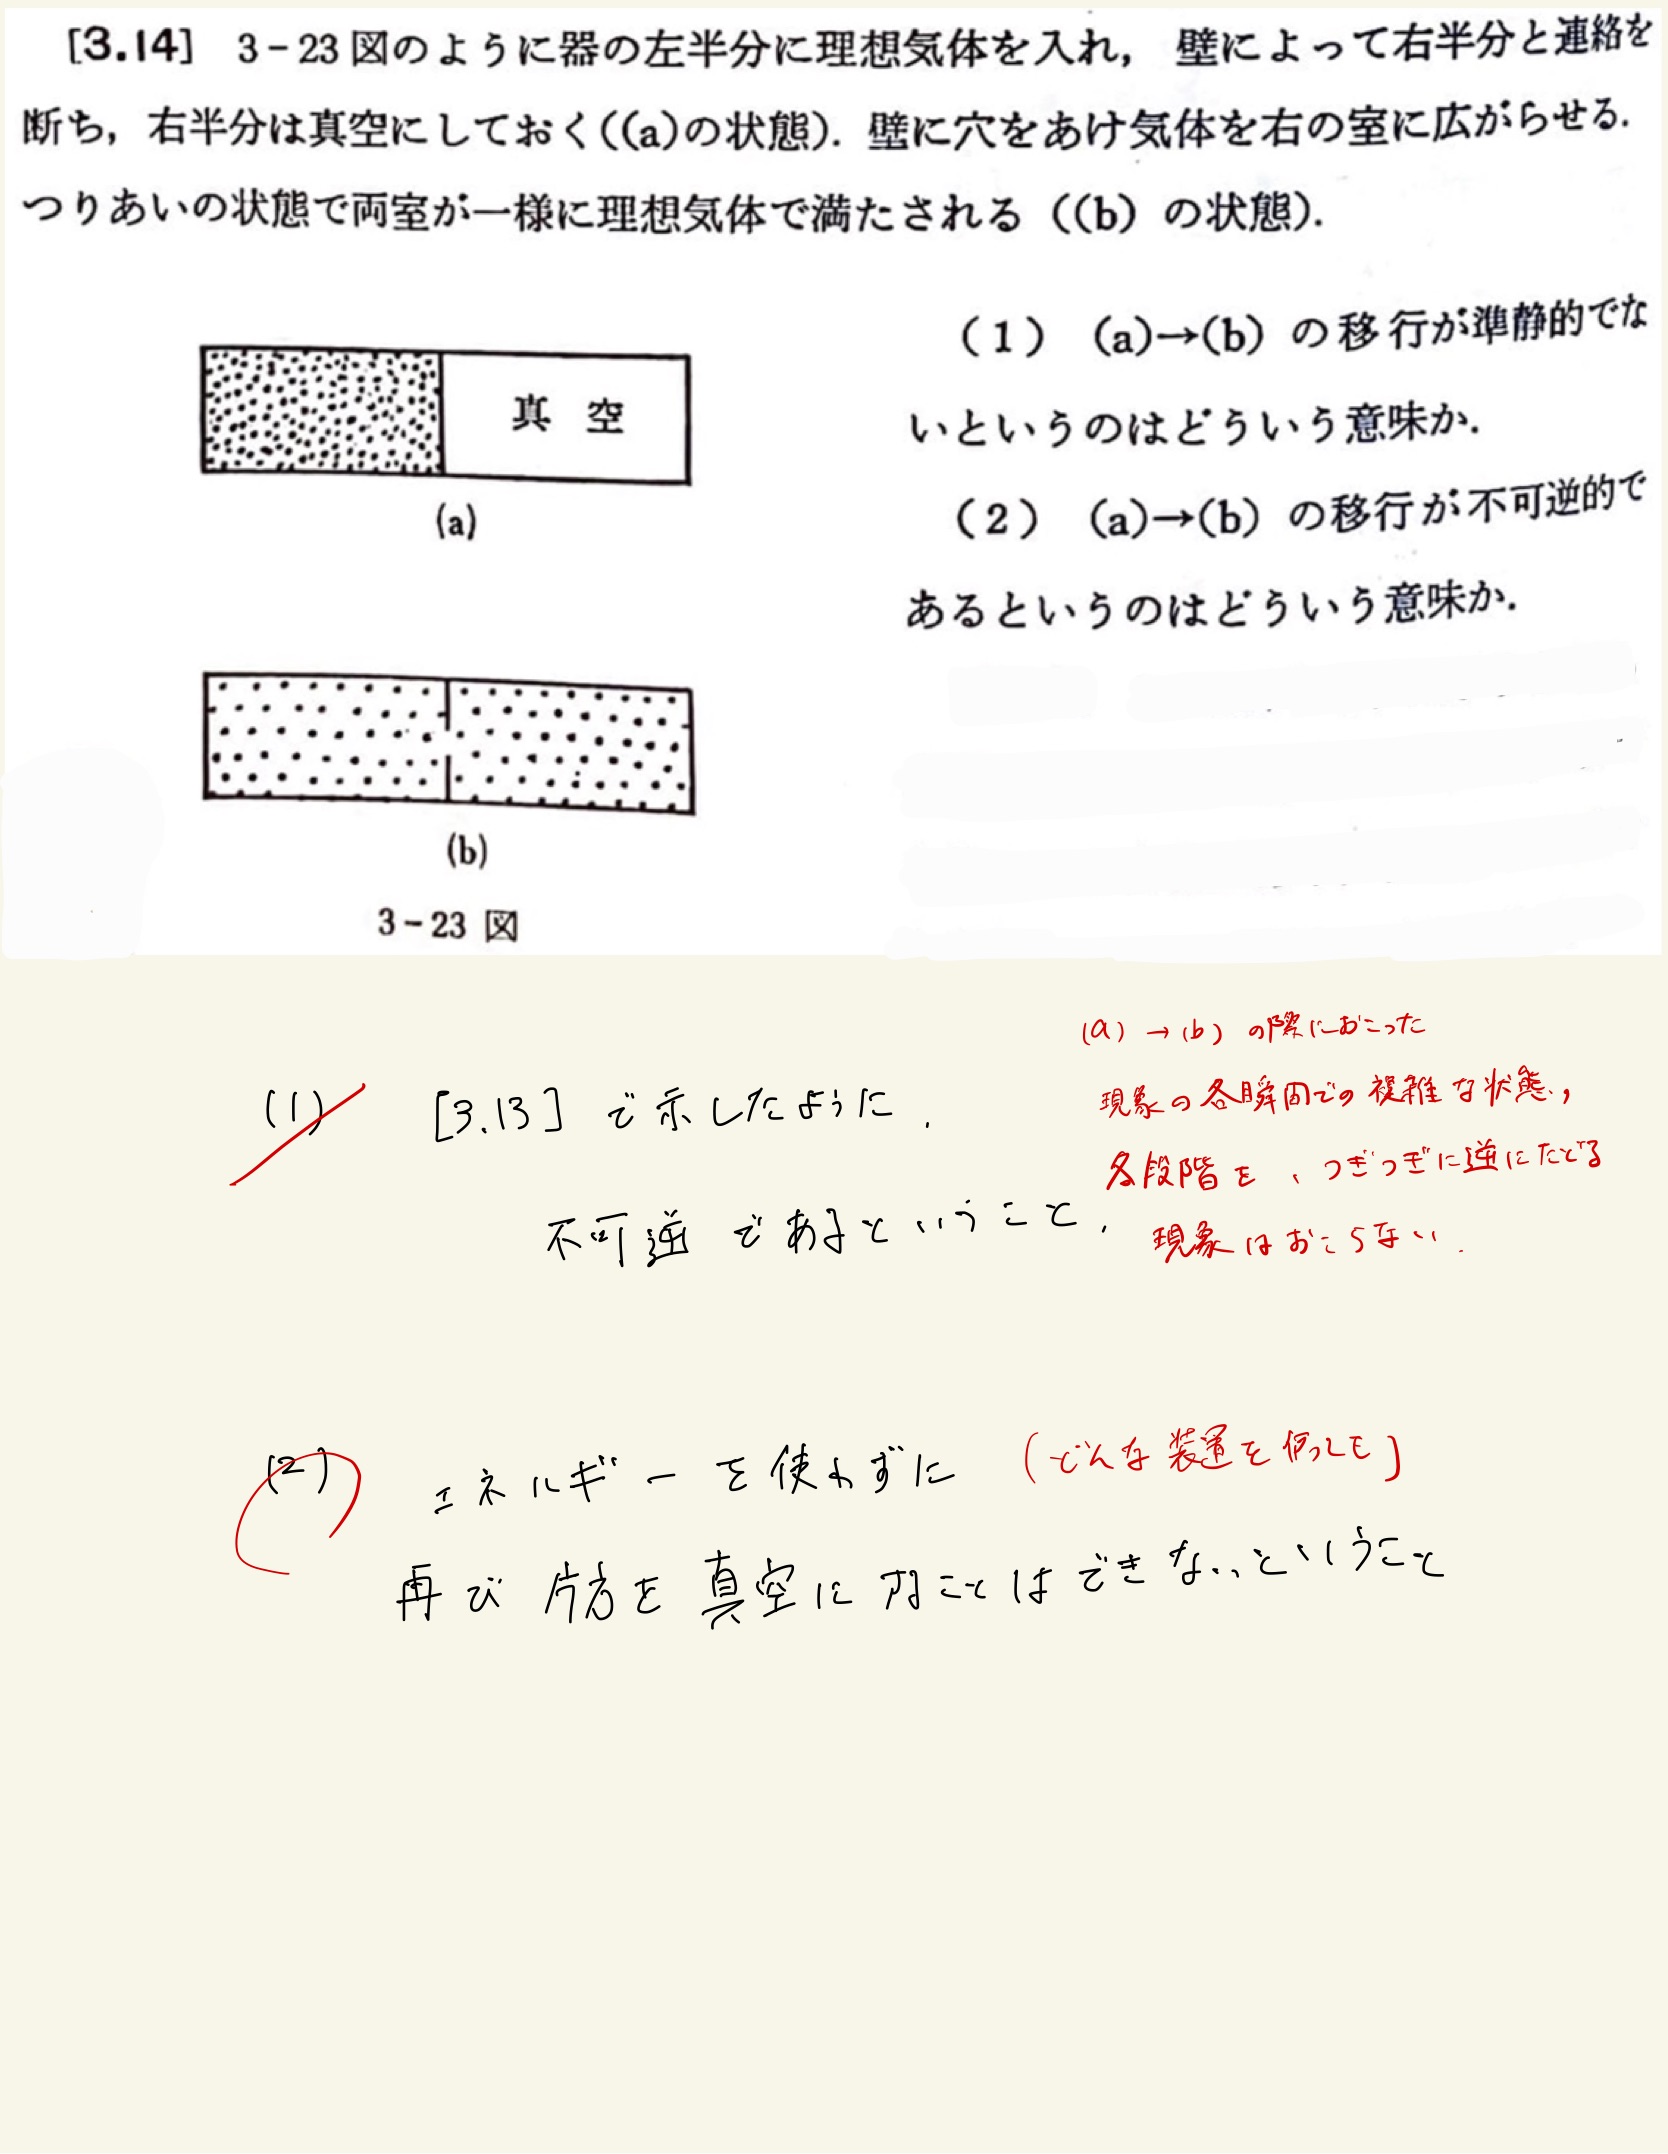 [3.14] 3-23図のように器の左半分に理想気体を入れ，壁によって右半分と連絡を
断ち，右半分は真空にしておく((a)の状態)．壁に穴をあけ気体を右の室に広がらせる．
つりあいの状態で両室が一様に理想気体で満たされる ((b) の状態)．
真 空
(a)
(b)
3-23 図
(1) (a)→(b) の移行が準静的でな
いというのはどういう意味か．
(2) (a)→(b) の移行が不可逆的で
あるというのはどういう意味か．
(1) [3.13] で示したように．
不可逆であるということ．
(a)→(b) の際におこった
現象の各瞬間での複雑な状態，
各段階を、つぎつぎに逆にたどる
現象はおこらない．
(2) エネルギーを使わずに (どんな装置を使っても)
再び片方を真空にすることはできないということ